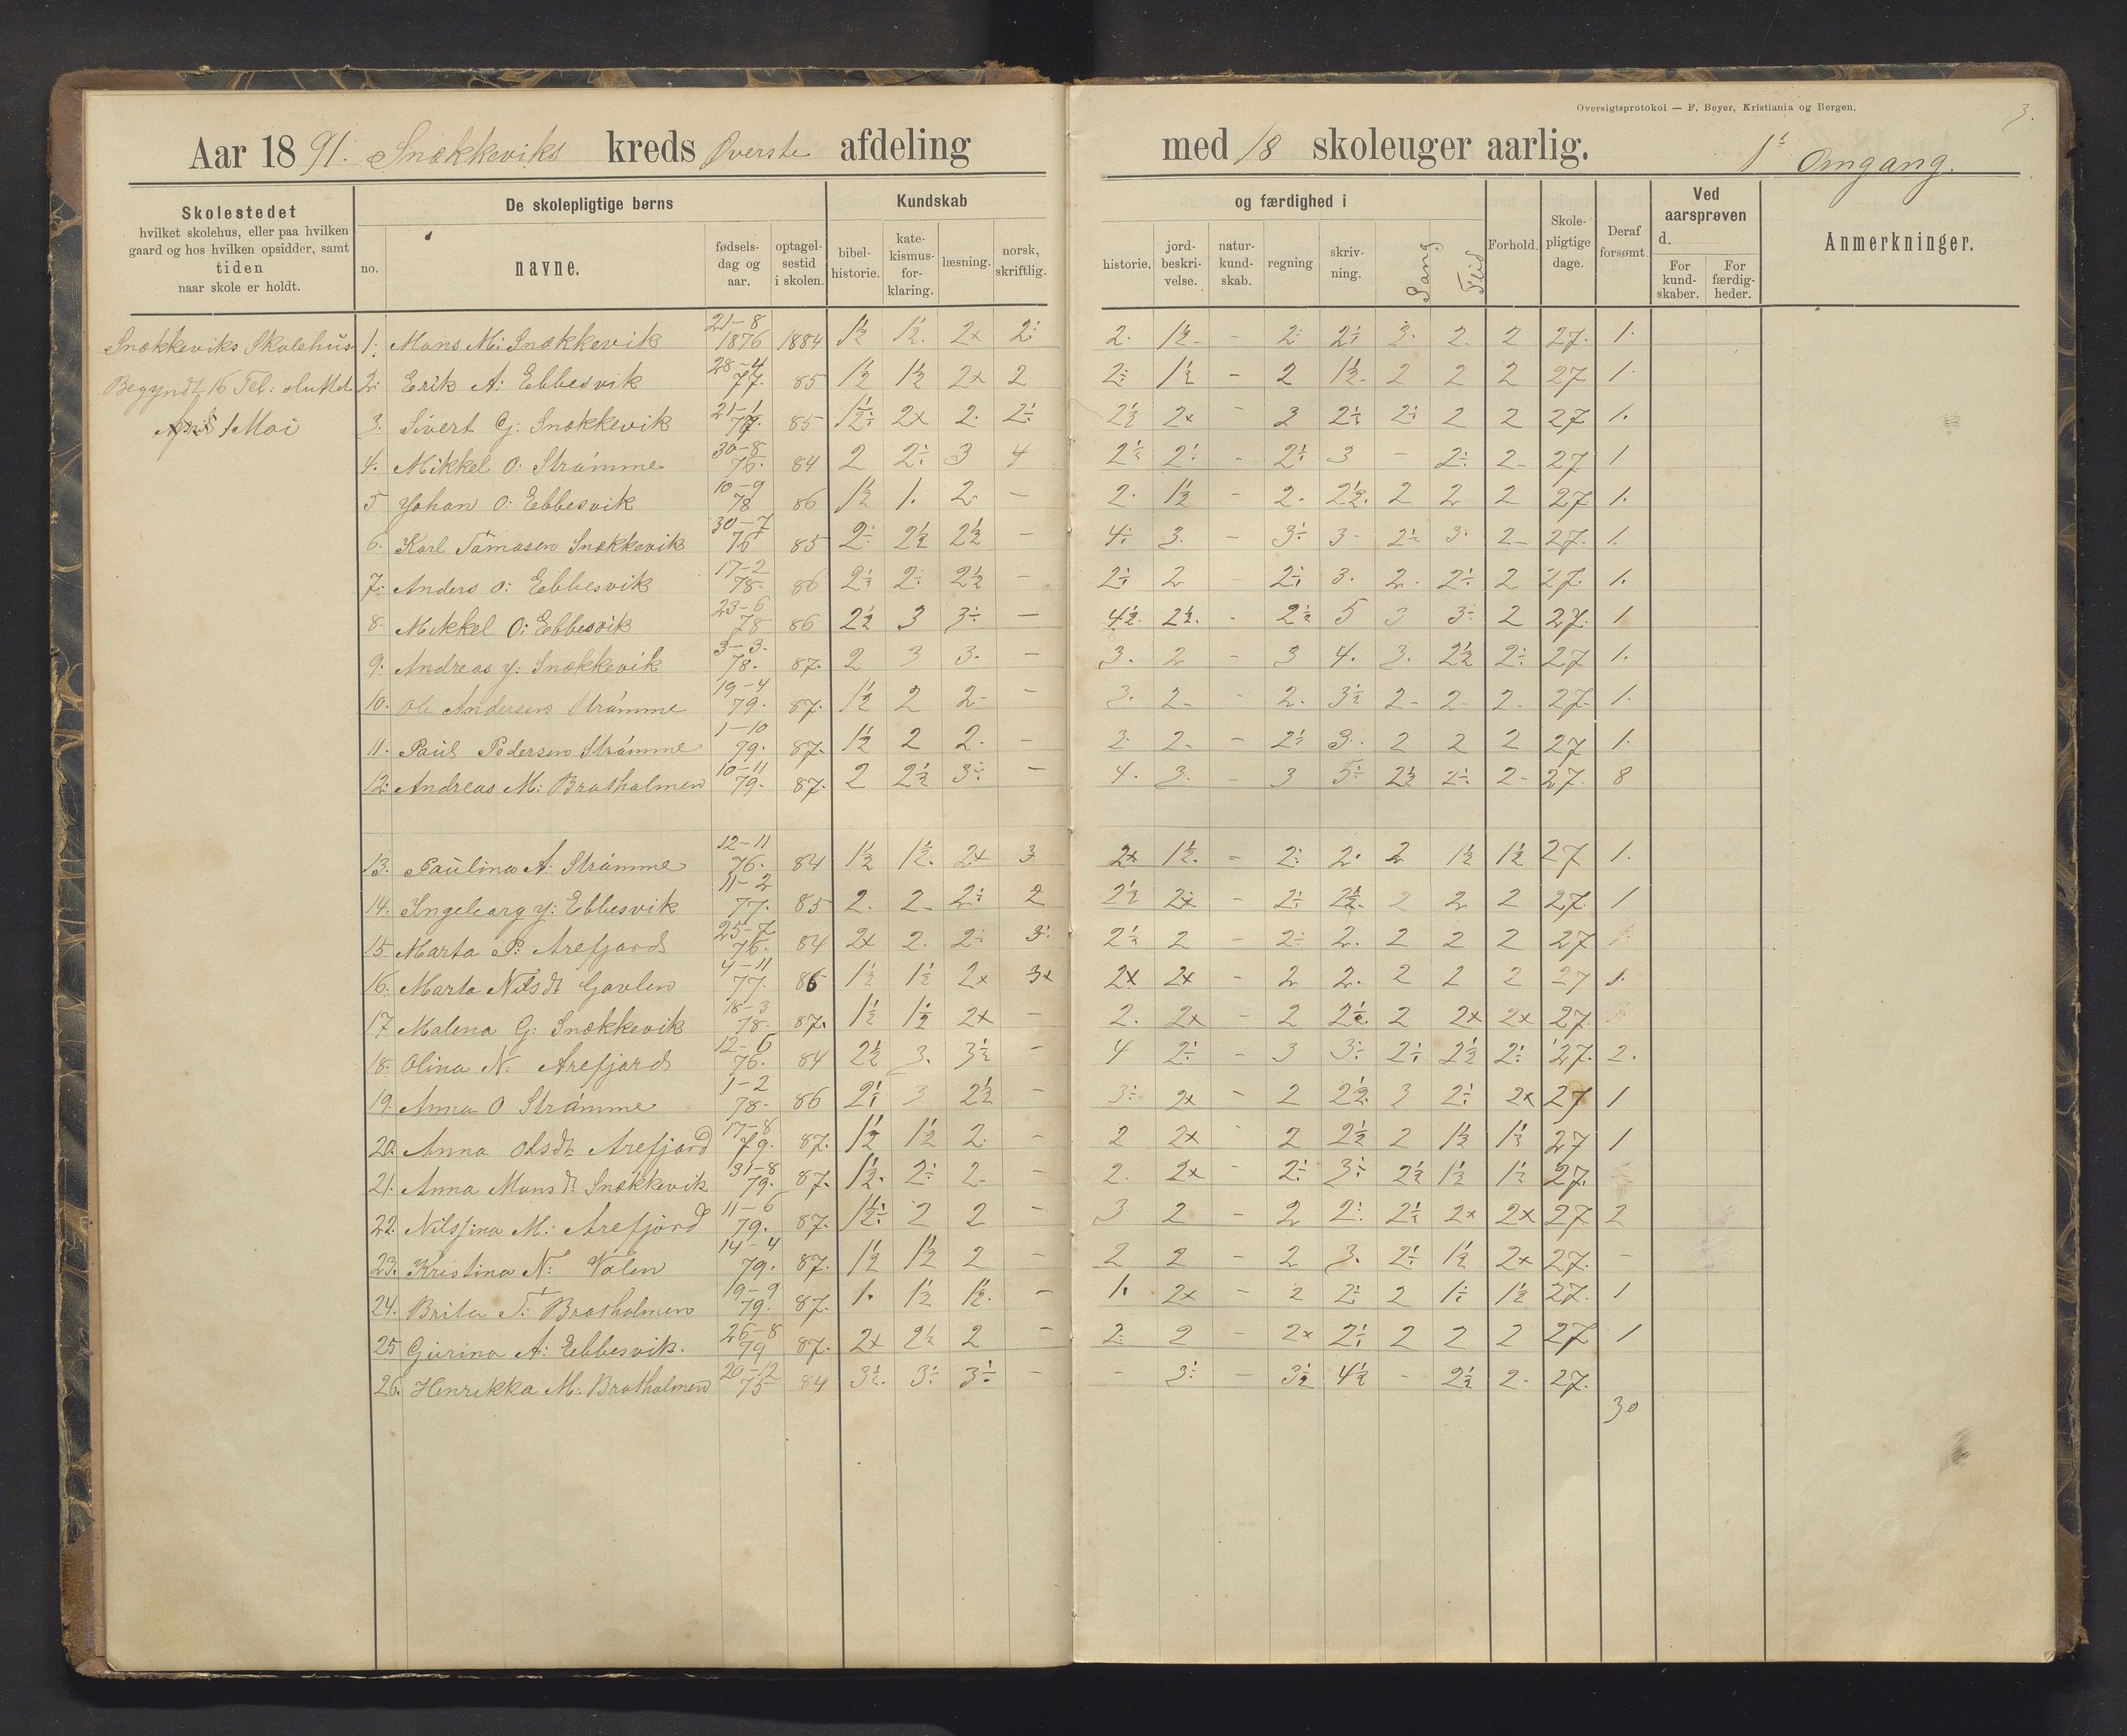 Oversigtsprotokol — F. Beyer, Kristiania og Bergen.
3.
Aar 1891. Snækkeviks kreds Øverste afdeling med 18 skoleuger aarlig. 1ste Omgang.
Skolestedet
hvilket skolehus, eller paa hvilken
gaard og hos hvilken opsidder, samt
tiden
naar skole er holdt.
De skolepligtige børns
no. navne. fødsels-dag og aar. optagel-sestid i skolen.
Kundskab og færdighed i
bibel-historie. kate-kismus-for-klaring. læsning. norsk, skriftlig. historie. jord-beskri-velse. natur-kund-skab. regning skriv-ning. Sang Flid
Forhold. Skole-pligtige dage. Deraf forsømt
Ved aarsprøven d.
For kund-skaber. For færdig-heder.
Anmerkninger.
Snækkeviks Skolehus
Begyndt 16 Feb: sluttet
1 Mai
1. Mons M: Snækkevik 21–8 1876 1884 1½ 1½. 2x 2÷ 2. 1½. – 2÷ 2÷ 3. 2. 2 27. 1.
2. Erik A: Ebbesvik 28–4 77. 85 1½ 1½ 2x 2 2÷ 1½ – 2 1½. 2 2 2 27 1.
3. Sivert G: Snækkevik 21–1 85 1½÷ 2x 2. 2÷ 2½ 2x – 3 2÷ 2÷ 2 2 27 1.
4. Mikkel O: Strømme 30–8 76. 84 2 2÷ 3 4 2½ 2÷ – 2÷ 3 – 2÷ 2 27 1
5 Johan O: Ebbesvik 10–9 78 86 1½ 1. 2. – 2. 1½ – 2. 2½. 2 2 2 27 1.
6. Karl Tomasen Snækkevik 30–7 76 85 2÷ 2½ 2½ – 4÷ 3. – 3÷ 3 2½ 3. 2 27. 1.
7. Anders O: Ebbesvik 17–2 78. 86 2÷ 2÷ 2½ – 2÷ 2 2÷ 3. 2. 2÷ 2 27. 1.
8. Mikkel O: Ebbesvik 23–6 78 86 2½ 3 3÷ – 4½. 2½. – 2½ 5 3 3÷ 2 27. 1
9. Andreas J: Snækkevik 3–3. 78. 87. 2 3 3. – 3. 2 – 3 4. 3. 2½ 2÷ 27 1.
10. Ole Andersen Strømme 19–4 79. 87. 1½ 2 2 – 3. 2 – 2. 3½ 2 2 2. 27. 1.
11. Paul Pedersen Strømme 1–10 79. 87. 1½ 2 2. – 3. 2. – 2½ 3. 2 2 2 27 1.
12. Andreas M: Bratholmen 10–11 79. 87. 2 2½ 3÷ – 4. 3. – 3 5÷ 2½ 2÷ 2 27. 8
13. Paulina A: Strømme 12–11 76. 84 1½ 1½. 2x 3 2x 1½. – 2÷ 2. 2 1½ 1½ 27 1.
14. Ingeborg J: Ebbesvik 11–2 77. 85 2. 2 2÷ 2 2½ 2x – 2÷ 2½. 2 2 2 27. 1
15 Marta P: Arefjord 25–7 76. 84 2x 2. 2÷ 3÷ 2½ 2 – 2÷ 2. 2 2 2 27
16. Marta Nilsdt Gavlen 4–11 77. 86 1½ 1½ 2x 3x 2x 2x – 2 2. 2 2 2 27 1.
17. Malena G: Snækkevik 18–3 78. 87. 1½ 1½ 2x – 2. 2x – 2 2½ 2 2x 2x 27.
18. Olina N: Arefjord 12–6 76. 84 2½ 3. 3½ – 4 2÷ – 3 3÷ 2÷ 2½ 2÷ 27. 2.
19. Anna O Strømme 1–2 78 86 2÷ 3 2½ – 3÷ 2x – 2 2½ 3 2÷ 2x 27 1
20. Anna Olsdt Arefjord 17–8 79. 87. 1½ 1½ 2. – 2 2x 2 2½ 2 1½ 1½ 27 1
21. Anna Monsdt Snækkevik 31–8 79. 87. 1½. 2÷ 2 – 2. 2x – 2÷ 3÷ 2½ 1½ 1½ 27.
22. Nilsfina M: Arefjord 11–6 79. 87. 1½÷ 2 2 – 3 2 – 2 2÷ 2½ 2x 2x 27 2
23. Kristina N: Valen 14–4 79. 87. 1½ 1½ 2 – 2 2 – 2 3. 2÷ 1½ 2x 27. –
24. Brita T: Bratholmen 19–9 79. 87. 1. 1½ 1½. – 1. 2x – 2 2÷ 2 1÷ 1½ 27. 1
25 Gurina A: Ebbesvik. 26–8 79 87. 2x 2½ 2 – 2÷ 2 – 2x 2÷ 2 2 2 27 1
26. Henrikka M: Bratholmen 20–12 75 84 3½. 3÷ 3÷ – – 3÷ – 3½ 4½ – 2½ 2 27.
30